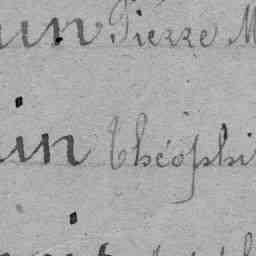 in Pierre M
in Théophi